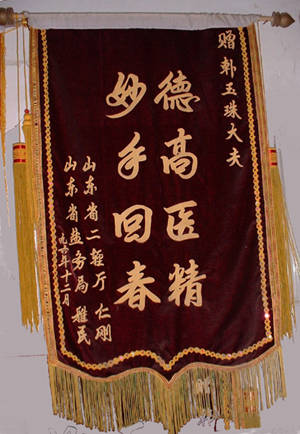 赠韩玉珠大夫
德高医精
妙手回春
山东省二轻厅 仁刚
山东省盐务局 雅民
九六年十二月